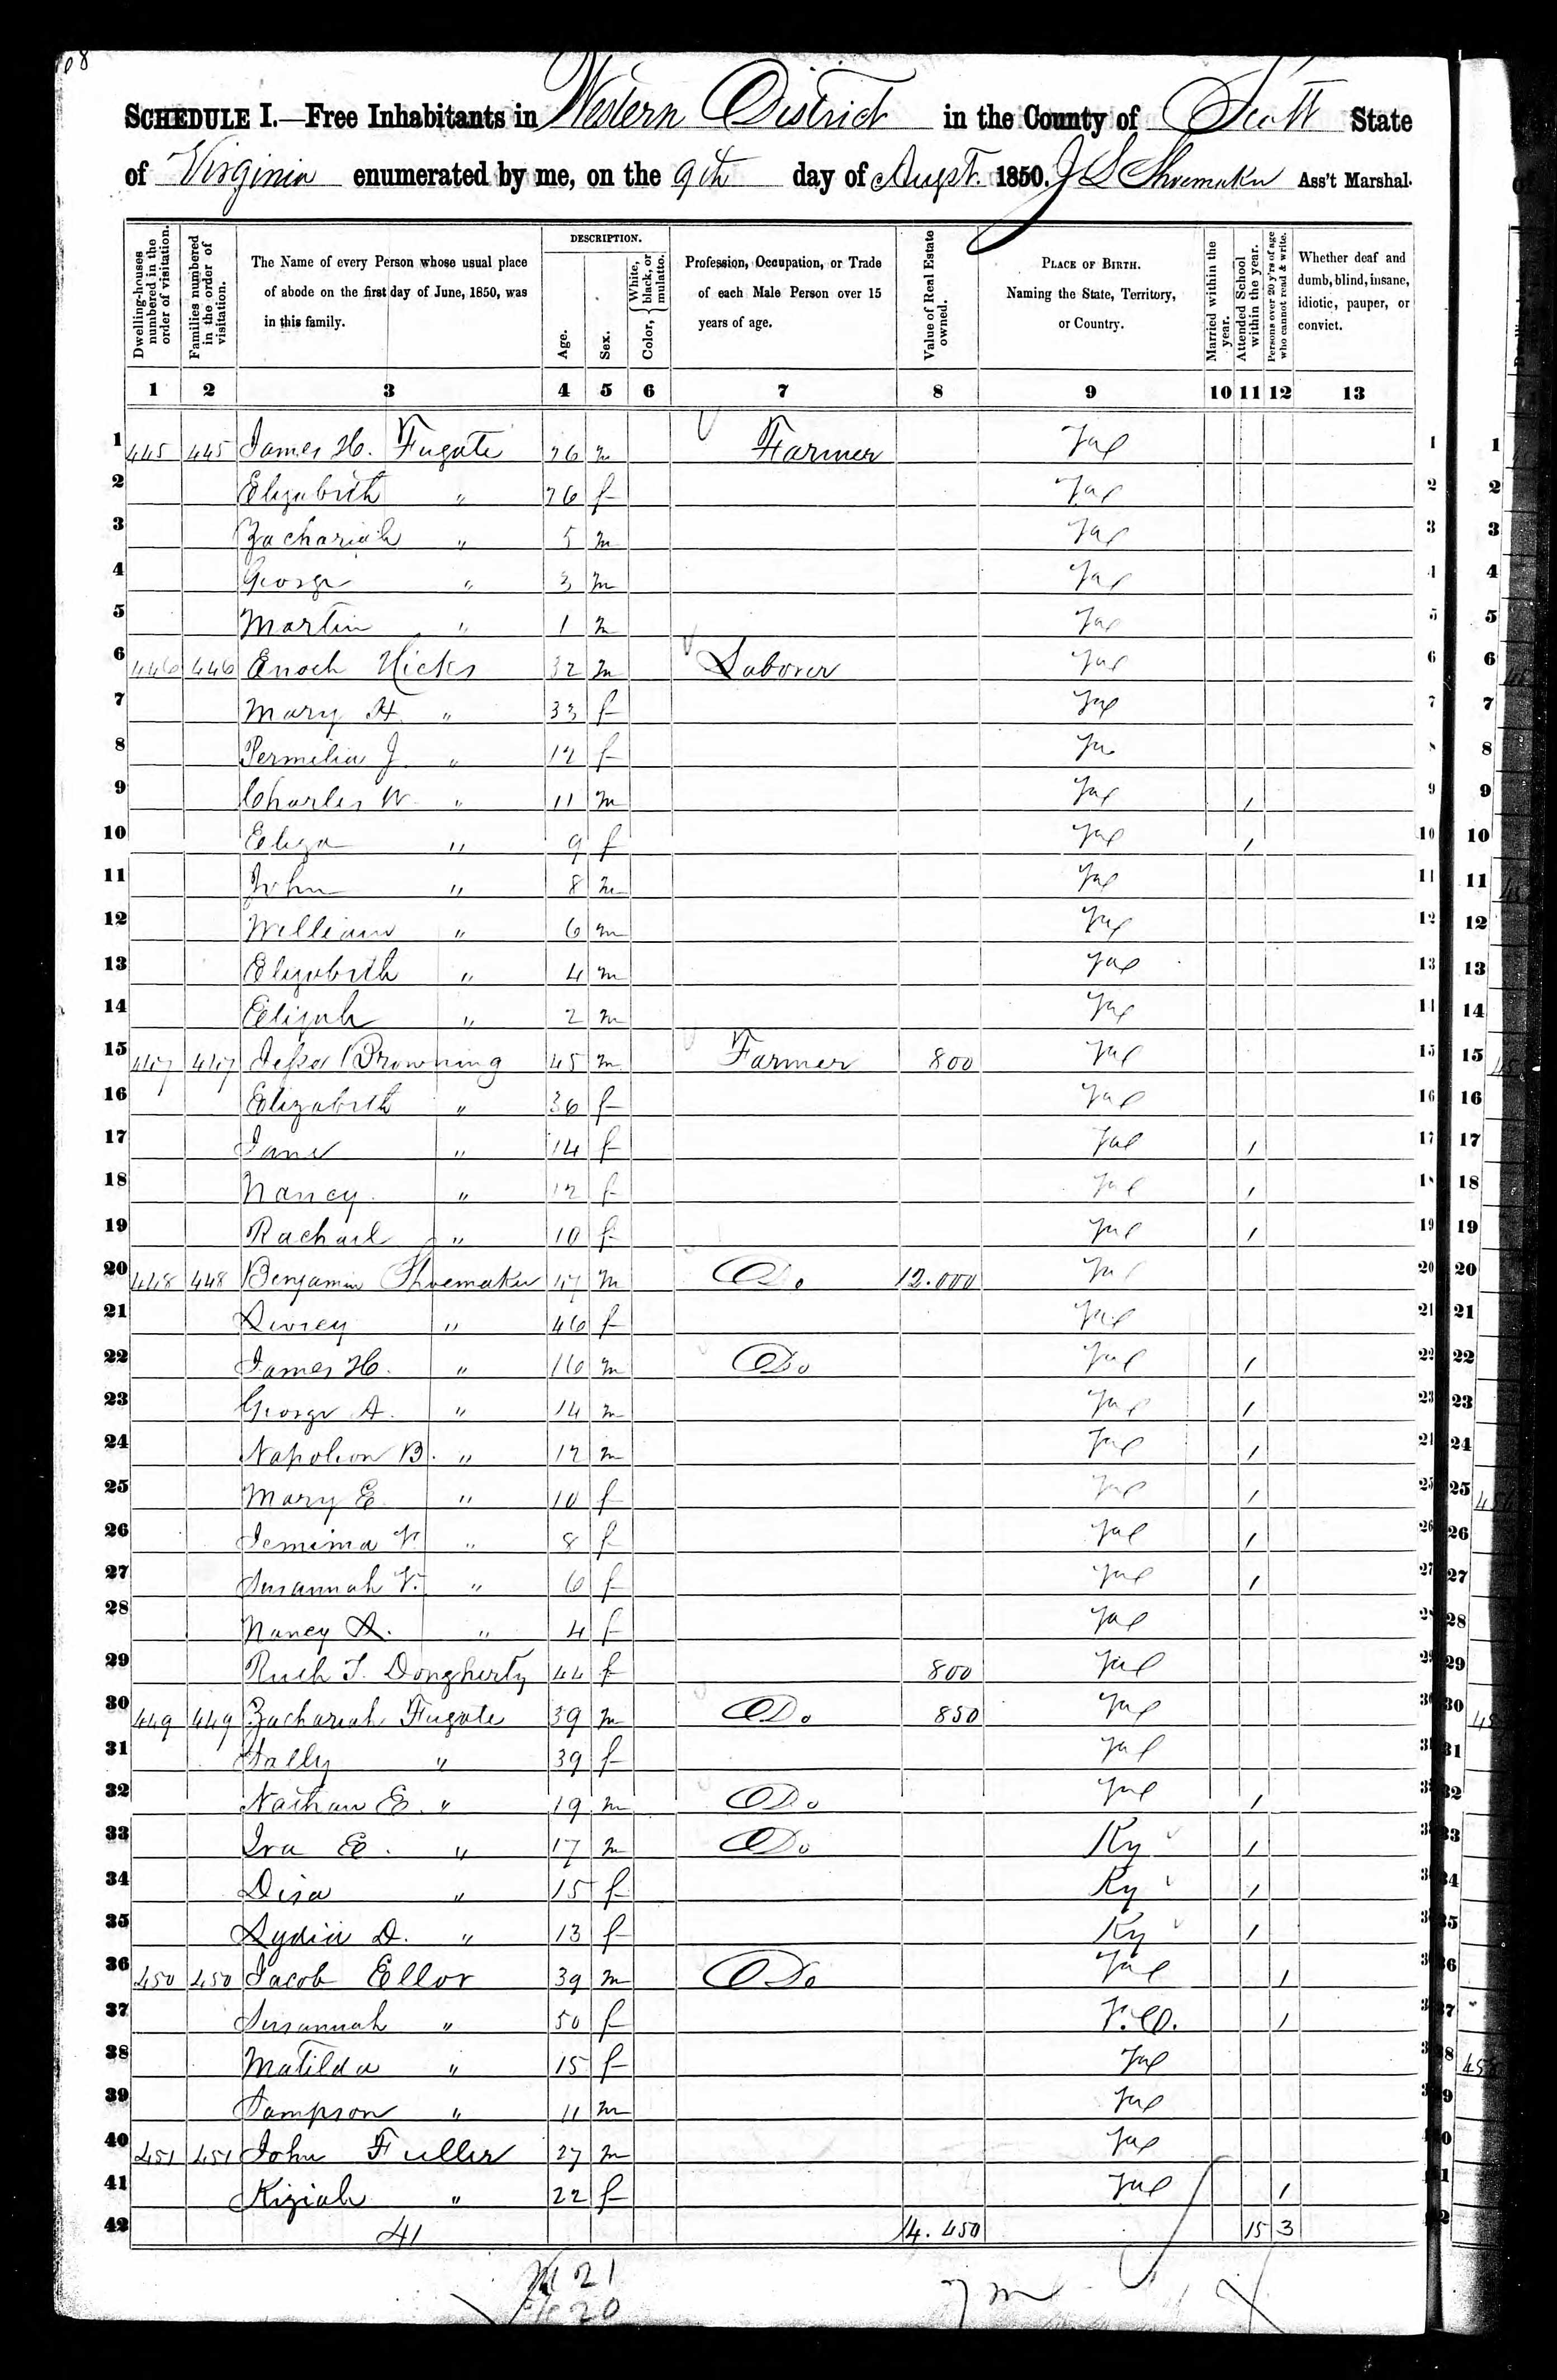 108
SCHEDULE I.—Free Inhabitants in Western District in the County of Scott State
of Virginia enumerated by me, on the 9th day of Augst. 1850. J S Shoemaker Ass't Marshal.
Dwelling-houses numbered in the order of visitation.
Families numbered in the order of visitation.
The Name of every Person whose usual place of abode on the first day of June, 1850, was in this family.
DESCRIPTION.
Age.
Sex.
Color, { White, black, or mulatto.
Profession, Occupation, or Trade of each Male Person over 15 years of age.
Value of Real Estate owned.
PLACE OF BIRTH. Naming the State, Territory, or Country.
Married within the year.
Attended School within the year.
Persons over 20 y'rs of age who cannot read & write.
Whether deaf and dumb, blind, insane, idiotic, pauper, or convict.
1 2 3 4 5 6 7 8 9 10 11 12 13
1 445 445 James H. Fugate 26 m Farmer Va 1
2 Elizabeth " 26 f Va 2
3 Zachariah " 5 m Va 3
4 George " 3 m Va 4
5 Martin " 1 m Va 5
6 446 446 Enoch Hicks 32 m Laborer Va 6
7 Mary A. " 33 f Va 7
8 Permelia J. " 12 f Va 8
9 Charles W. " 11 m Va / 9
10 Eliza " 9 f Va / 10
11 John " 8 m Va 11
12 William " 6 m Va 12
13 Elizabeth " 4 m Va 13
14 Elijah " 2 m Va 14
15 447 447 Jesse Browning 45 m Farmer 800 Va 15
16 Elizabeth " 36 f Va 16
17 Jane " 14 f Va / 17
18 Nancy " 12 f Va / 18
19 Rachael " 10 f Va / 19
20 448 448 Benjamin Shoemaker 47 m Do 12.000 Va 20
21 " 46 f Va 21
22 James H. " 16 m Do Va / 22
23 George A. " 14 m Va / 23
24 Napoleon B. " 12 m Va / 24
25 Mary E. " 10 f Va / 25
26 Jemima V. " 8 f Va / 26
27 Susannah V. " 6 f Va / 27
28 Nancy A. " 4 f Va 28
29 Ruth T. Dougherty 44 f 800 Va 29
30 449 449 Zachariah Fugate 39 m Do 850 Va 30
31 Sally " 39 f Va 31
32 Nathan E. " 19 m Do Va / 32
33 Ira E. " 17 m Do Ky / 33
34 Disa " 15 f Ky / 34
35 Lydia D. " 13 f Ky / 35
36 450 450 Jacob Ellor 39 m Do Va / 36
37 Susannah " 50 f / 37
38 Matilda " 15 f Va 38
39 Sampson " 11 m Va 39
40 451 451 John Fuller 27 m Va 40
41 Kiziah " 22 f Va / 41
42 41 14.450 15 3
M 21
F 20